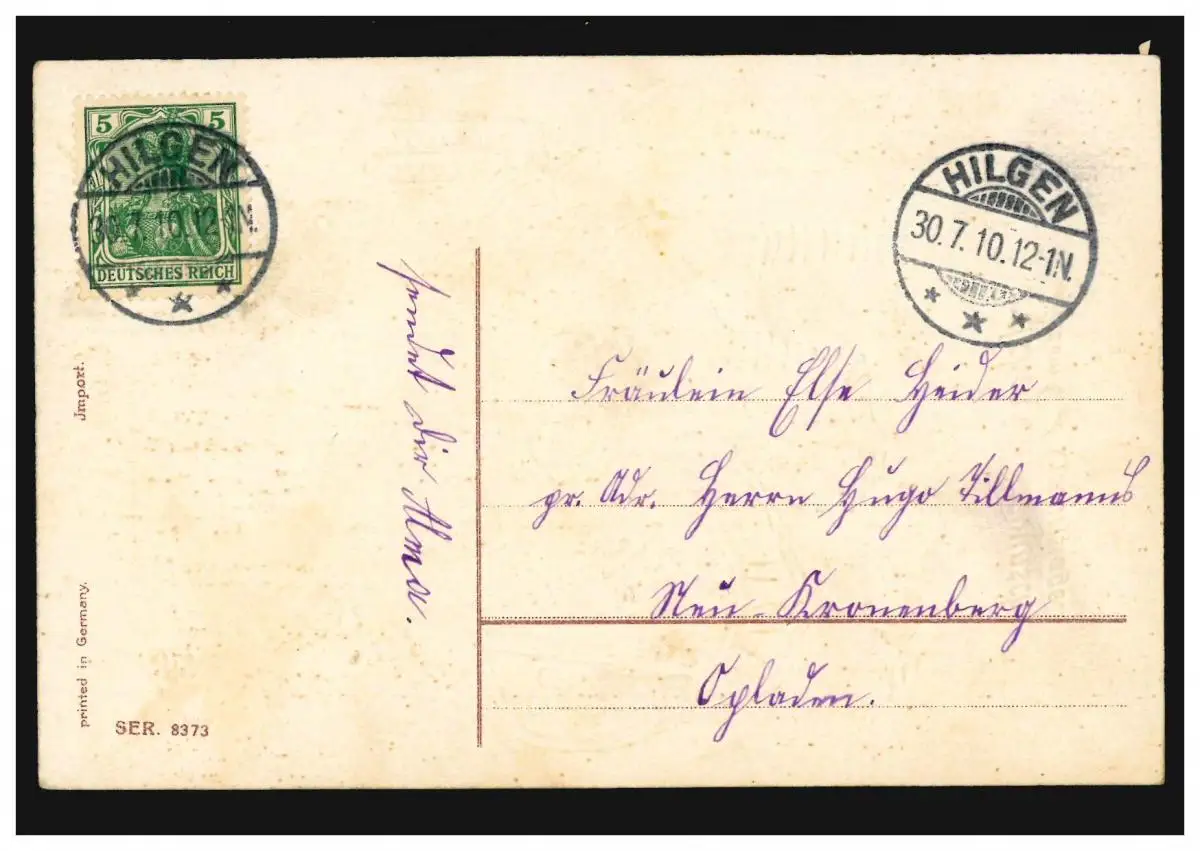 5 5
HILGEN
30.7.10.12-1N.
DEUTSCHES REICH
HILGEN
30.7.10.12-1N.
sendet dir Alma.
Fräulein Else Heider
pr. Adr. Herrn Hugo Tillmanns
Neu-Kronenberg
Opladen.
Import.
printed in Germany.
SER. 8373